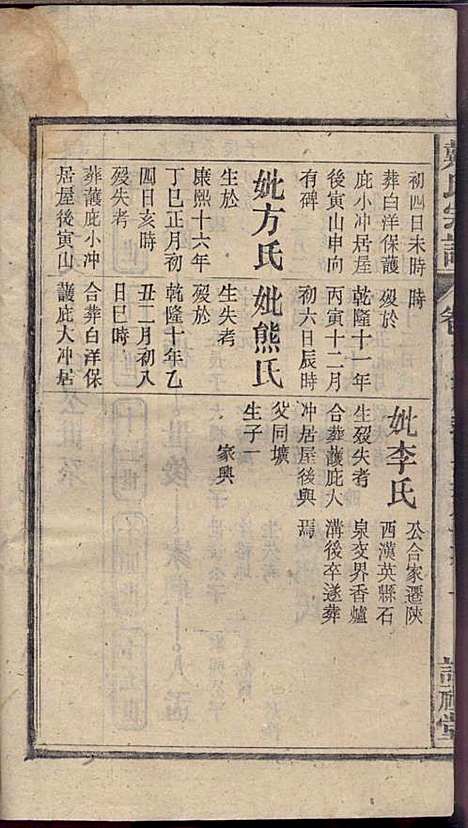 氏宗譜
卷
禮堂
初四日未時
葬白洋保護
庇小冲居屋
後寅山申向
有碑
妣方氏
生於
康熙十六年
丁巳正月初
四日亥時
歿失考
葬護庇小冲
居屋後寅山
時
歿於
乾隆十一年
丙寅十二月
初六日辰時
妣熊氏
生失考
歿於
乾隆十年乙
丑二月初入
日巳時
合葬白洋保
護庇大冲居
妣李氏
生歿失考
合葬護庇大
冲居屋後與
父同壙
生子一
家興
公合家遷陝
西漢英縣石
泉交界香爐
溝後卒遂葬
焉